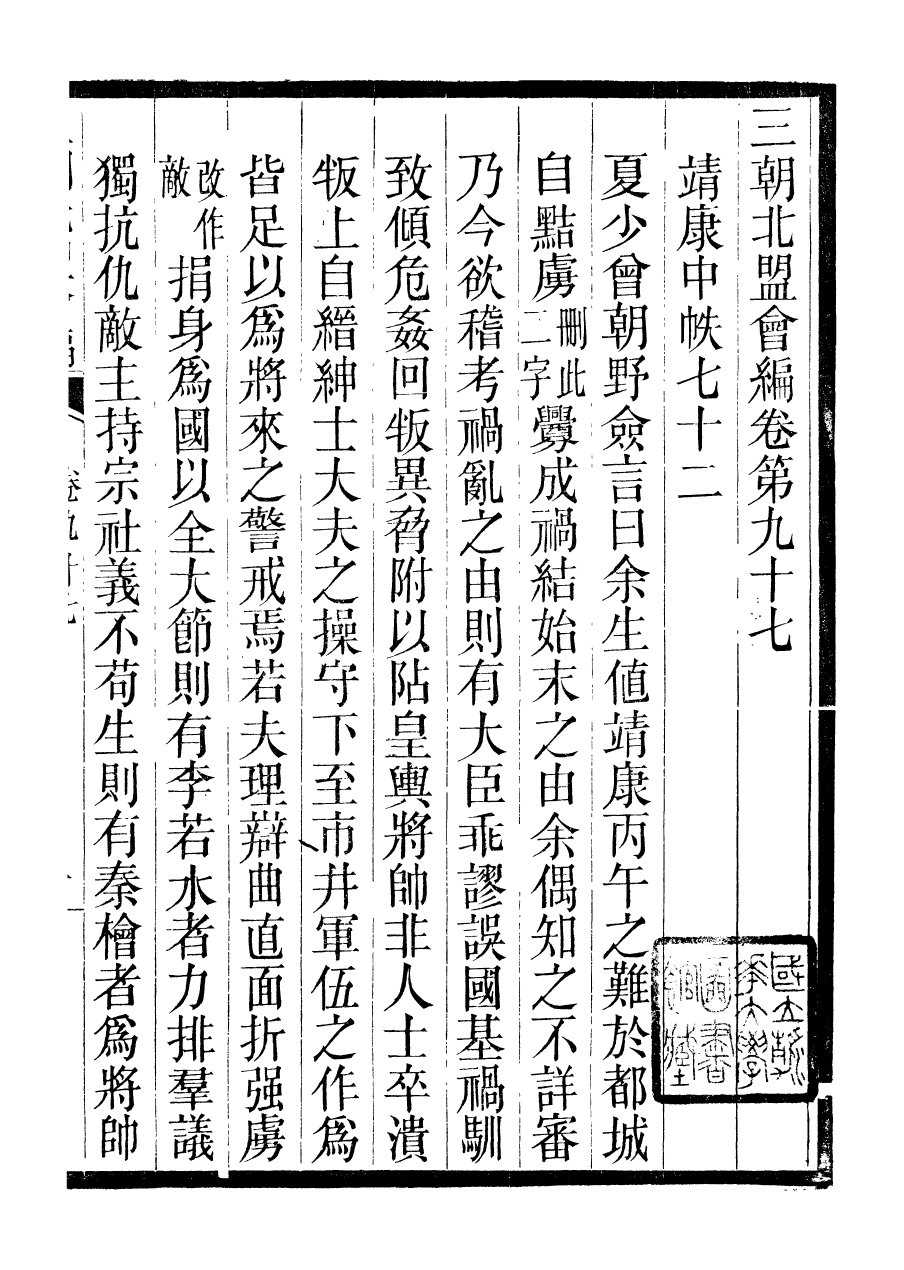 三朝北盟會編卷第九十七
靖康中帙七十二
夏少曾朝野僉言曰余生値靖康丙午之難於都城
自點虜刪此二字釁成禍結始末之由余偶知之不詳審
乃今欲稽考禍亂之由則有大臣乖謬誤國基禍馴
致傾危姦回叛異脅附以阽皇輿將帥非人士卒潰
叛上自縉紳士大夫之操守下至市井軍伍之作爲
皆足以爲將來之警戒焉若夫理辯曲直面折强虜
改作敵捐身爲國以全大節則有李若水者力排羣議
獨抗仇敵主持宗社義不苟生則有秦檜者爲將帥
卷九十七
國立
大學
圖書
館